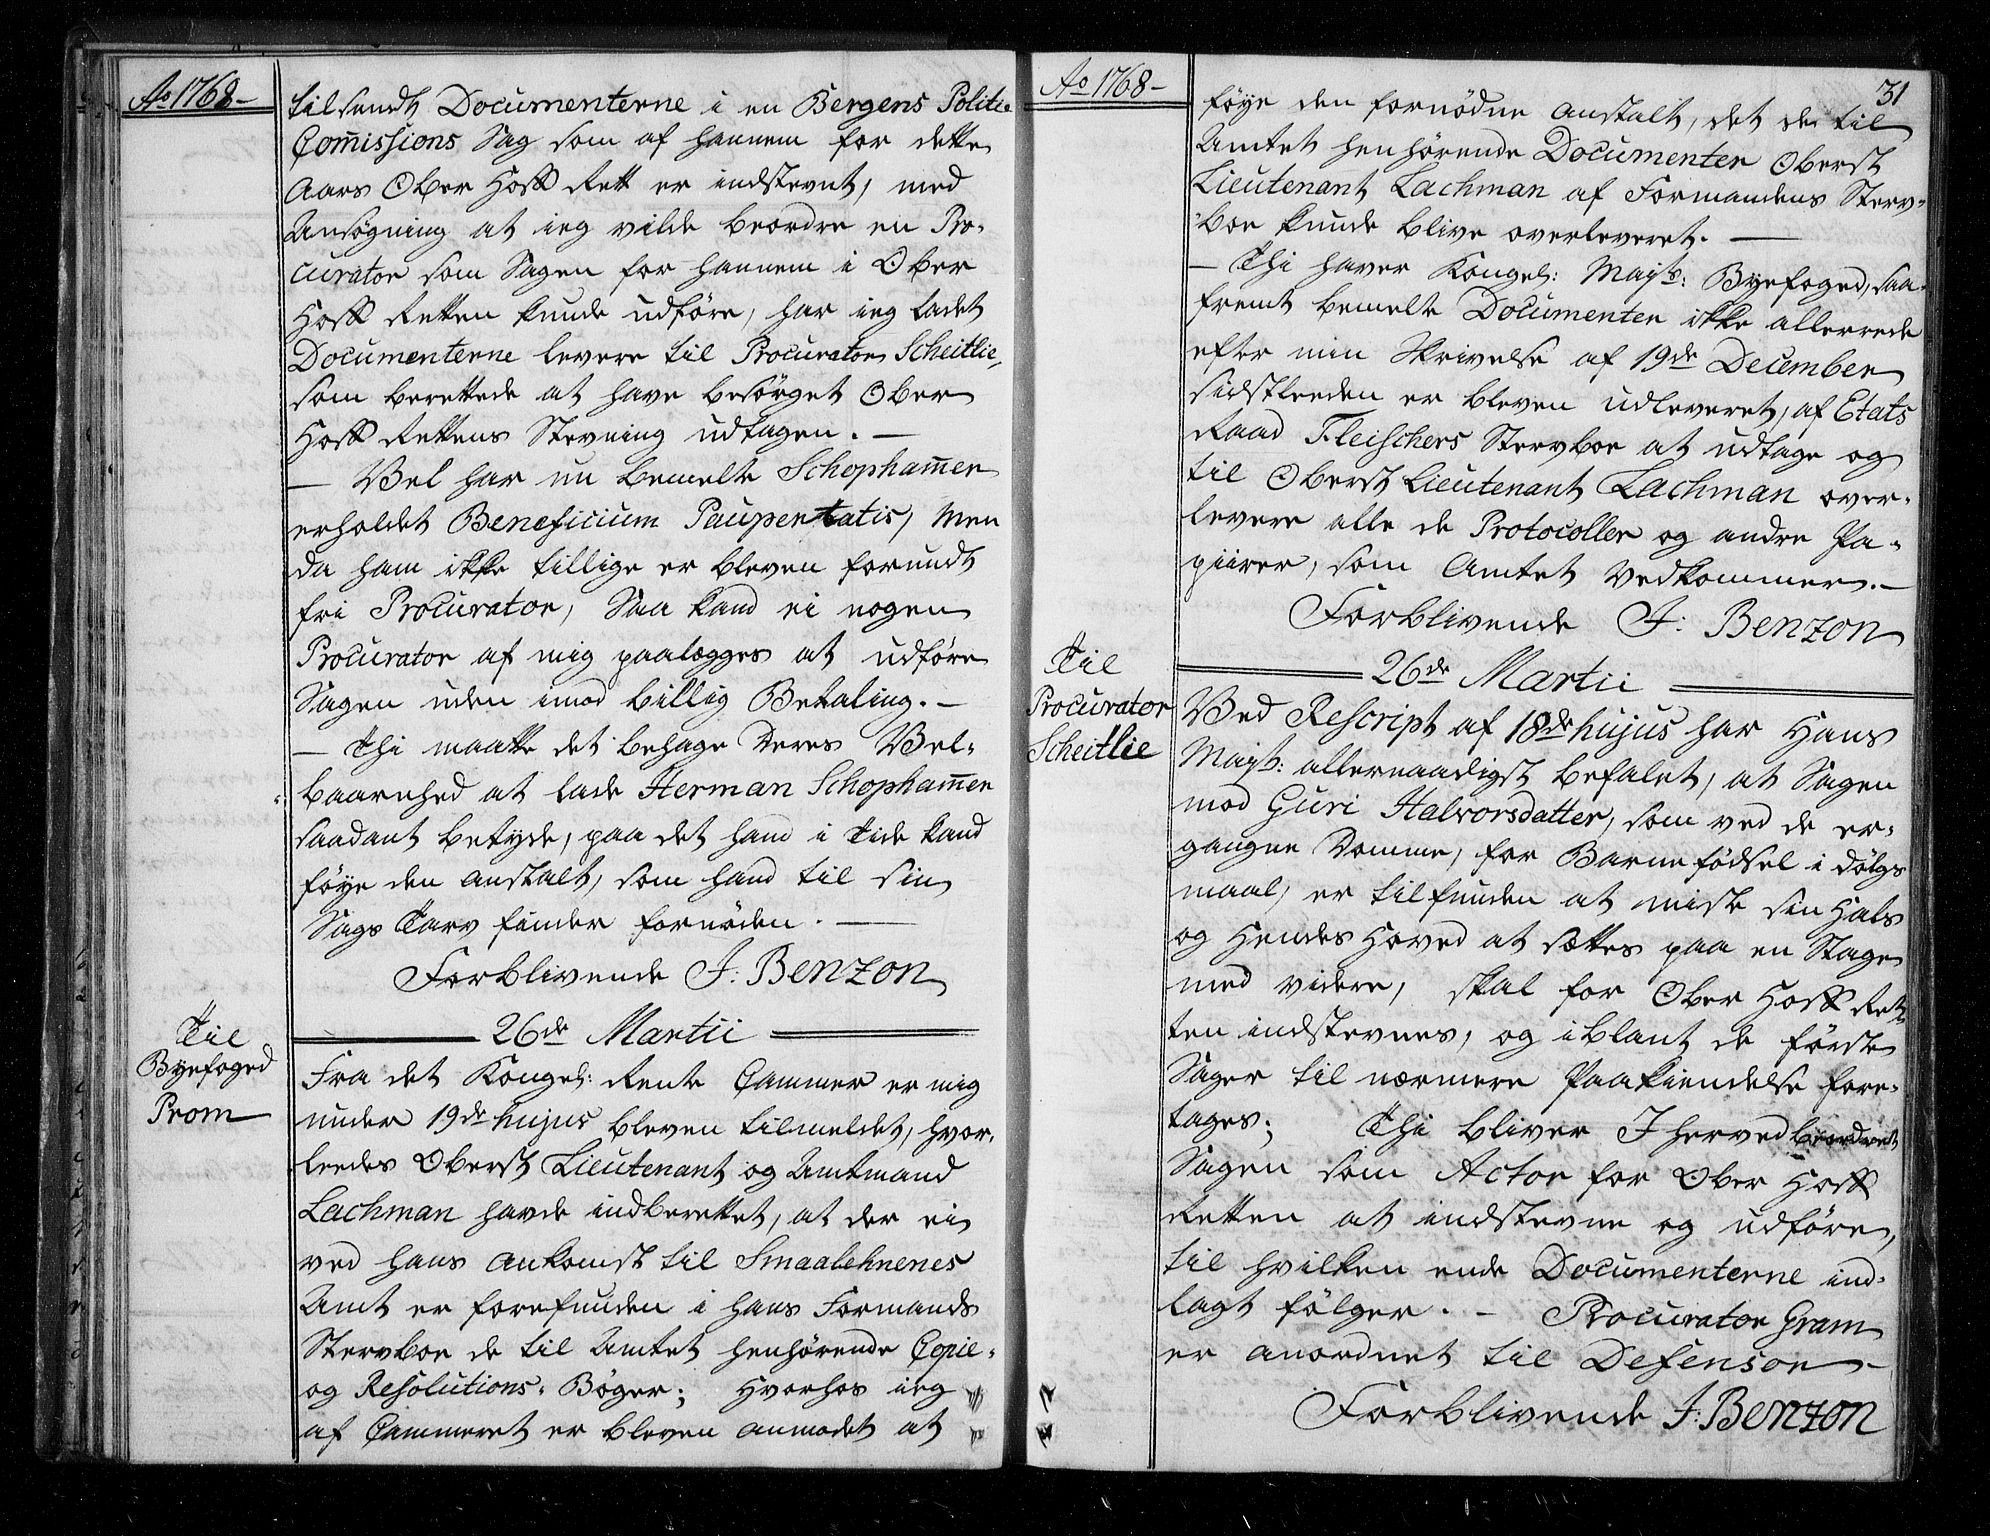 Ao 1768-
tilsendt Documenterne i en Bergens Politie
Com̄issions Sag som af hannem for dette
Aars Ober Hoff Rett er indstevnt, med
Ansøgning at ieg vilde beordre en Pro-
curator som Sagen for hannem i Ober
Hoff Retten kunde udføre, har ieg ladet
Documenterne levere til Procurator Scheitlie,
som berettede at have besørget Ober
Hoff Rettens Stevning udtagen. —
— Vel har nu bemelte Schopham̄er
erholdet Beneficium Paupertatis, Men
da ham ikke tillige er bleven forundt
fri Procurator, Saa kand ei nogen
Procurator af mig paalægges at udføre
Sagen uden imod billig Betaling. —
— Thi maatte det behage Deres Vel-
baarnhed at lade Herman Schopham̄er
saadant betyde, paa det hand i Tide kand
føye den anstalt, som hand til sin
Sags Tarv finder fornøden. —
Forblivende J: Benzon
26de Martii
Til
Byefoged
Prom
Fra det Kongel: Rente Cammer er mig
under 19de hujus bleven tilmeldet, hvor-
leedes Oberst Lieutenant og Amtmand
Lachman havde indberettet, at der ei
ved hans ankomst til Smaalehnenes
Amt er forefunden i hans Formands
Stervboe de til Amtet henhørende Copie-
og Resolutions-Bøger; Hvorhos ieg
af Cammeret er bleven anmodet at
Ao 1768-
31
føye den fornødne anstalt, det de til
Amtet henhørende Documenter Oberst
Lieutenant Lachman af Formandens Sterv-
boe kunde blive overleveret. —
— Thi haver Kongel: Mayts: Byefoged, saa-
fremt bemelte Documenter ikke allerrede
efter min Skrivelse af 19de December
sidstleeden er bleven udleveret, af Etats
Raad Fleischers Stervboe at udtage og
til Oberst Lieutenant Lachman over-
levere alle de Protocoller og andre Pa-
piirer, som Amtet vedkommer. —
Forblivende J: Benzon
26de Martii
Til
Procurator
Scheitlie
Ved Rescript af 18de hujus har Hans
Mayts: allernaadigst befalet, at Sagen
mod Guri Halvorsdatter, som ved de er-
gangne Domme, for Barnefødsel i dølgs
maal, er tilfunden at miste sin Hals
og Hendes Hoved at sættes paa en Stage
med videre, skal for Ober Hoff Ret-
ten indstevnes, og iblant de første
Sager til nærmere Paakiendelse fore-
tages; Thi bliver I herved beordret
Sagen som Actor for Ober Hoff
Retten at indstevne og udføre,
til hvilken ende Documenterne ind-
lagt følger. — Procurator Gram
er anordnet til Defensor —
Forblivende J: Benzon